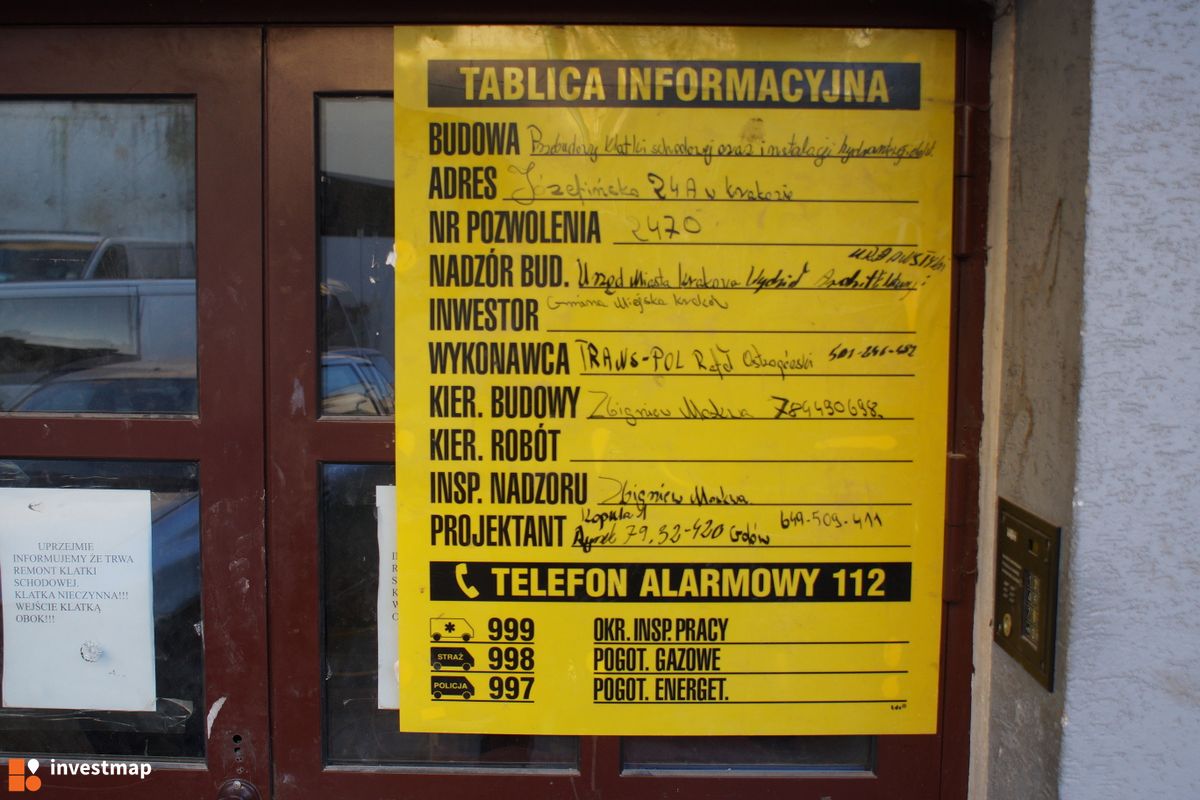 TABLICA INFORMACYJNA
BUDOWA Przebudowy klatki schodowej oraz instalacji
ADRES Józefińska 24A w Krakowie
NR POZWOLENIA 2470
NADZÓR BUD. Urząd Miasta Krakowa Wydział Architektury i
INWESTOR Gmina Miejska Kraków
WYKONAWCA TRANS-POL Rafał 501-246-452
KIER. BUDOWY Zbigniew Moskwa 784490698
KIER. ROBÓT
INSP. NADZORU Zbigniew Moskwa
PROJEKTANT Rynek 79, 32-420 Gdów 649-509-411
TELEFON ALARMOWY 112
999 OKR. INSP. PRACY
STRAŻ 998 POGOT. GAZOWE
POLICJA 997 POGOT. ENERGET.
UPRZEJMIE
INFORMUJEMY ŻE TRWA
REMONT KLATKI
SCHODOWEJ.
KLATKA NIECZYNNA!!!
WEJŚCIE KLATKĄ
OBOK!!!
investmap